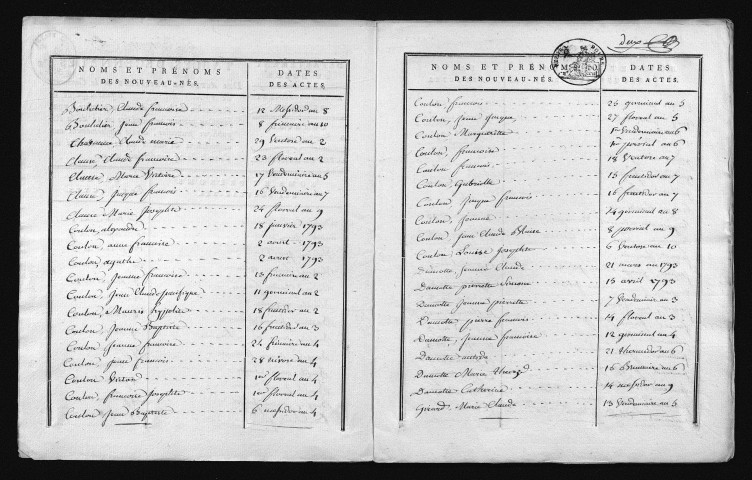 NOMS ET PRÉNOMS
DES NOUVEAU-NÉS.
DATES
DES ACTES.
Boulutier, Claude francoise 12 Messidor au 8
Boulutier, Jean francois 8 frimaire au 10
Claude marie 29 Ventose au 2
Clausse Claude francoise 23 floreal au 2
Clausse Marie 17 Vendemiaire au 5
Clausse Jacques francois 16 Vendemiaire au 7
Clausse Marie Josephte 24 floreal au 9
Coulon, alexandre 18 janvier 1793
Coulon, anne francoise 2 avril 1793
Coulon, agathe 2 avril 1793
Coulon, Jeanne francoise 13 frimaire au 2
Coulon, Jean Claude pacifique 11 germinal au 2
Coulon, Mauris hyppolite 18 fructidor au 2
Coulon, Jeanne Baptiste 16 fructidor au 3
Coulon, Jeanne francoise 24 frimaire au 4
Coulon, Jean francois 28 nivose au 4
Coulon 1er floreal au 4
Coulon, francoise Josephte 1er floreal au 4
Coulon, Jean Baptiste 6 messidor au 4
deux
NOMS ET PRÉNOMS
DES NOUVEAU-NÉS.
DATES
DES ACTES.
Coulon francois 25 germinal au 5
Coulon, Jean Jacques 27 floreal au 5
Coulon Marguerite 1er Vendemiaire au 6
Coulon, francoise 1er prairial au 6
Coulon francois 18 Ventose au 7
Coulon Gabrielle 15 fructidor au 7
Coulon Jacques francois 16 fructidor au 7
Coulon, Jeanne 14 germinal au 8
Coulon Jean Claude Blaise 8 prairial au 9
Coulon Louise Josephte 6 Ventose au 10
Damotte, Jeanne Claude 21 mars au 1793
Damotte pierrette Simone 15 avril 1793
Damotte Jeanne pierrette 7 Vendemiaire au 3
Damotte pierre francois 14 floreal au 3
Damotte, Jeanne francoise 12 germinal au 4
Damotte 21 thermidor au 6
Damotte Marie 16 Brumaire au 6
Damotte Catherine 14 messidor au 9
Girard, Marie Claude 13 Vendemiaire au 5